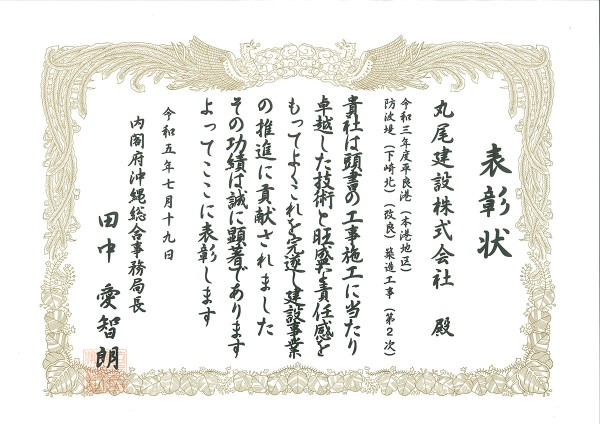 表彰状
丸尾建設株式会社 殿
令和三年度平良港（本港地区）
防波堤（下崎北）（改良）築造工事（第２次）
貴社は頭書の工事施工に当たり
卓越した技術と旺盛な責任感を
もってよくこれを完遂し建設事業
の推進に貢献されました
その功績は誠に顕著であります
よってここに表彰します
令和五年七月十九日
内閣府沖縄総合事務局長
田中 愛智朗